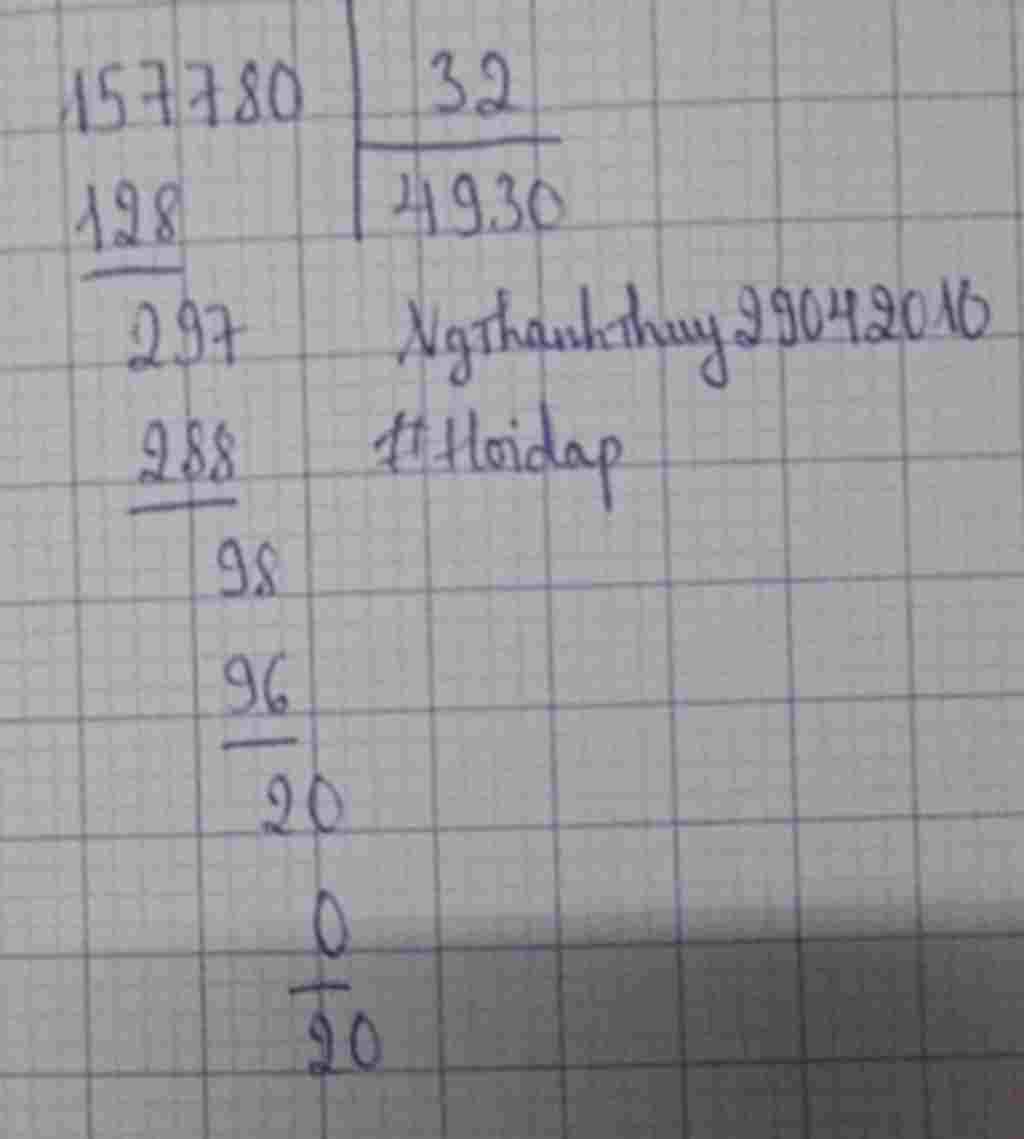 157780 32
128 4930
297 NgThanhThuy29042016
288 #Hoidap
98
96
20
0
20